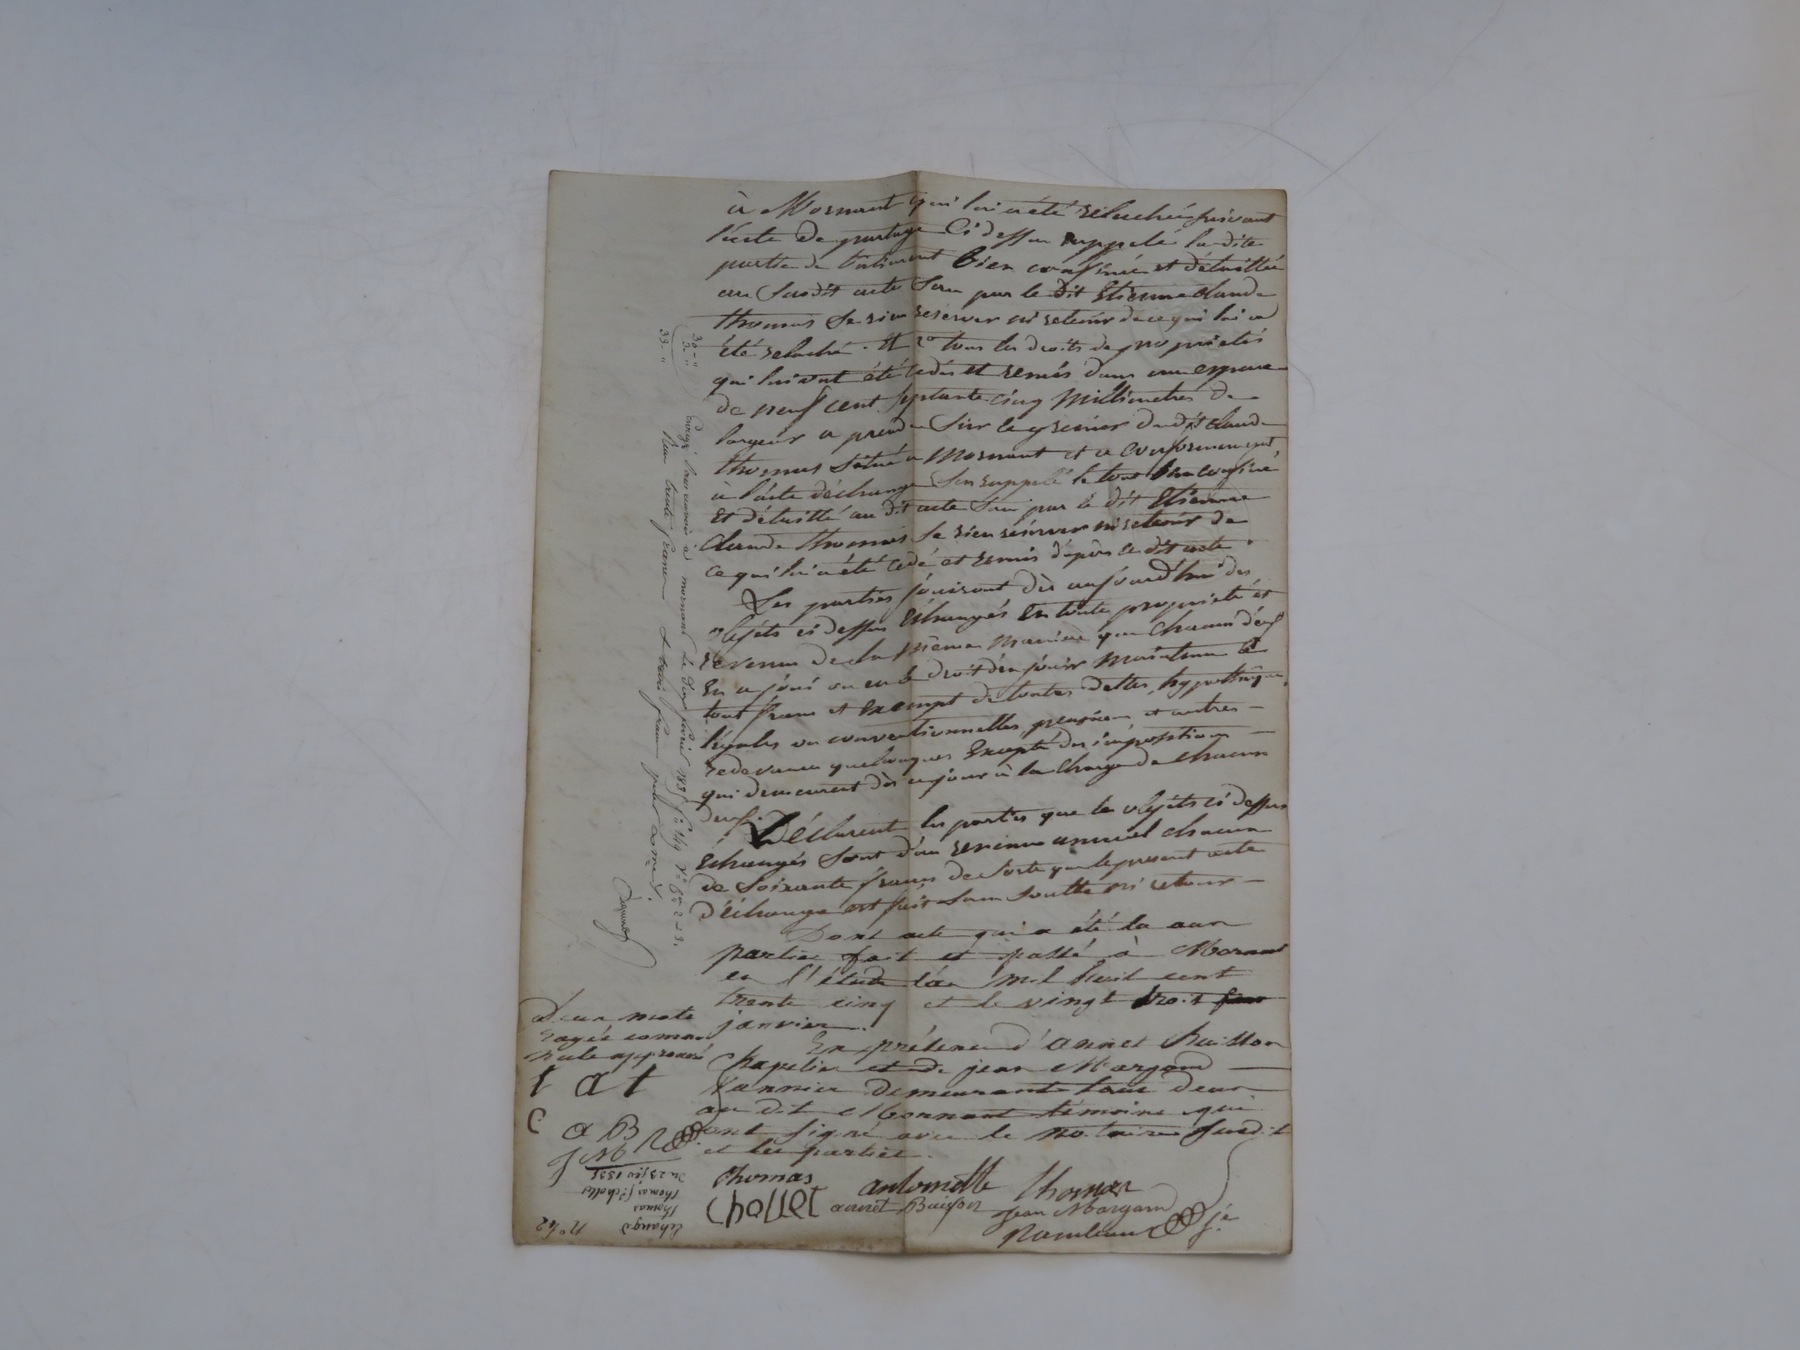 à Mornant qui lui a été relachée suivant
l'acte de partage Ci dessus rappelé la dite
partie de bâtiment bien confinée et détaillée
au Susdit acte Sans par le dit Etienne Claude
thomas Se rien réserver ni retenir de ce qui lui a
été relaché. Et 2o tous les droits de propriétés
qui lui ont été cedés et remis dans un espace
de neuf cent septante cinq Millimetres de
largeur a prendre Sur le grenier du dit Claude
thomas Situé a Mornant et ce Conformement
à l'acte déchange Sus rappelé le tout bien confiné
Et détaillé au dit acte Sans par le dit Etienne
Claude thomas Se rien réserver ni retenir de
ce qui lui a été cedé et remis d'après le dit acte.
Les parties jouiront dès aujourd'hui des
objets ci dessus Echangés En toute propriété et
revenu de la même Maniere que Chacun d'eux
En a joui ou eu le droit d'en jouir Maintenu le
tout franc et Exempt de toutes dettes, hypothèques,
légales ou conventionnelles, pensions, et autres
redevances quelconques Excepté des impositions
qui demeurent dès ce jour à la Charge de chacun
d'eux.
Déclarent les parties que les objets ci dessus
Echangés Sont d'un revenu annuel chacun
de Soixante francs de Sorte que le present acte
d'échange est fait Sans Soulte ni retour
Dont acte qui a été lu aux
parties fait et passé à Mornant
en l'étude l'an mil huit cent
trente cinq et le vingt trois
janvier.
En présence d'annet Buisson
Chapelier et de jean Margaron
Vannier demeurants tous deux
au dit Mornant témoins qui
ont signé avec le notaire susdit
et les parties.
thomas antoinette thomas
thomas annet Buisson Jean Margaron
Deux mots
rayés comme
nuls approuvés
t a t
C
a B
J M
30 "
3 "
33 "
Enregistré à mornant le février 1835 fo 149 Vo
Reçu trente francs et trois francs pour
No 42
Echange
thomas
thomas
du 23 jer 1835